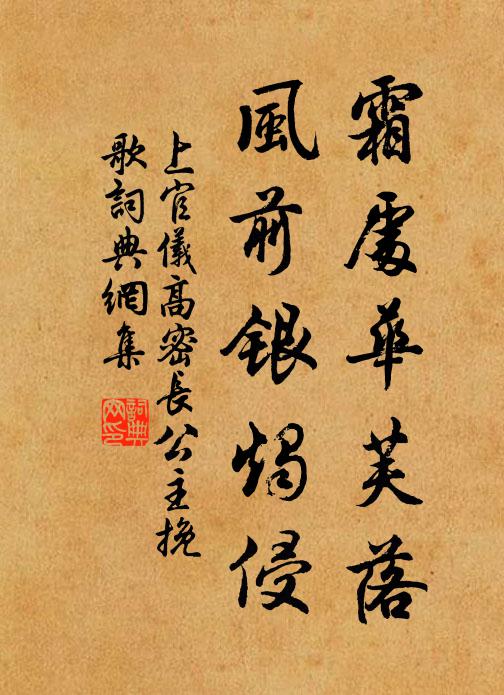 霜處華芙落
風前銀燭侵
上官儀高密長公主挽
歌詞典網集
詞典網印